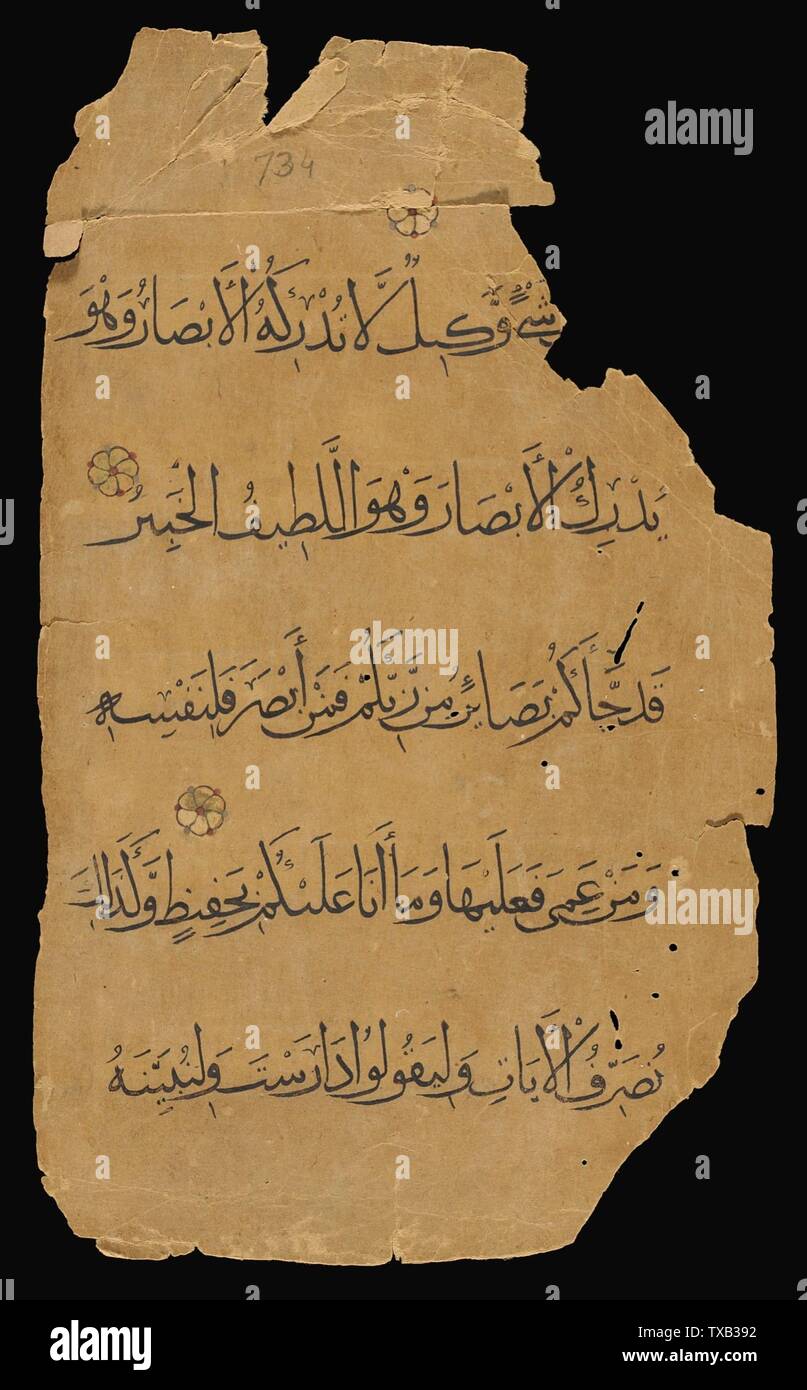 734
شَىْءٍ وَّكِيلٌ لَّا تُدْرِكُهُ الْأَبْصَارُ وَهُوَ
يُدْرِكُ الْأَبْصَارَ وَهُوَ اللَّطِيفُ الْخَبِيرُ
قَدْ جَّآءَكُمْ بَصَائِرُ مِنْ رَّبِّكُمْ فَمَنْ أَبْصَرَ فَلِنَفْسِهِ
وَمَنْ عَمِىَ فَعَلَيْهَا وَمَا أَنَا عَلَيْكُمْ بِحَفِيظٍ وَّكَذَالِكَ
نُصَرِّفُ الْأَيَاتِ وَلِيَقُولُوا دَارَسْتَ وَلِنُبَيِّنَهُ
alamy
Image ID: TXB392
www.alamy.com